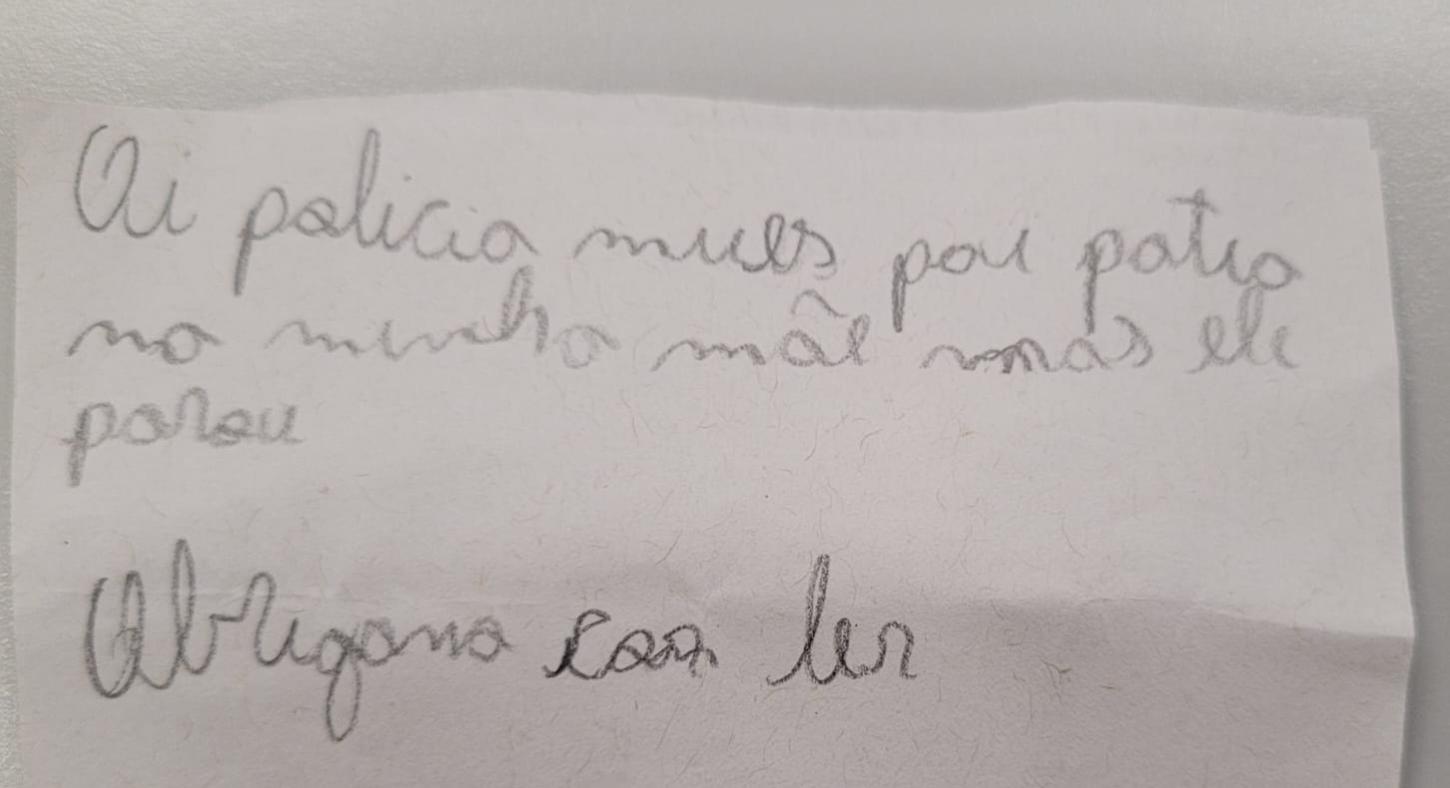 Oi policia mues pai patia
na minha mãe mas ele
parou
Obrigana com ler